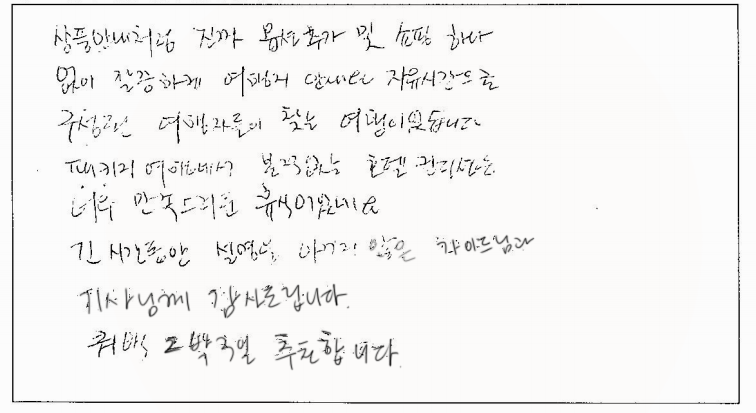 상품안내처럼 진짜 옵션추가 및 쇼핑 하나
없이 알증하게 여행지 안내와 자유시간으로
구성된 여행자들이 찾는 여행이었습니다
패키지 여행에서 볼수없는 호텔 컨디션은
너무 만족스러운 휴식이었네요
긴 시간동안 설명을 아끼지 않은 가이드님과
기사님께 감사드립니다.
퀘벡 2박3일 추천합니다.